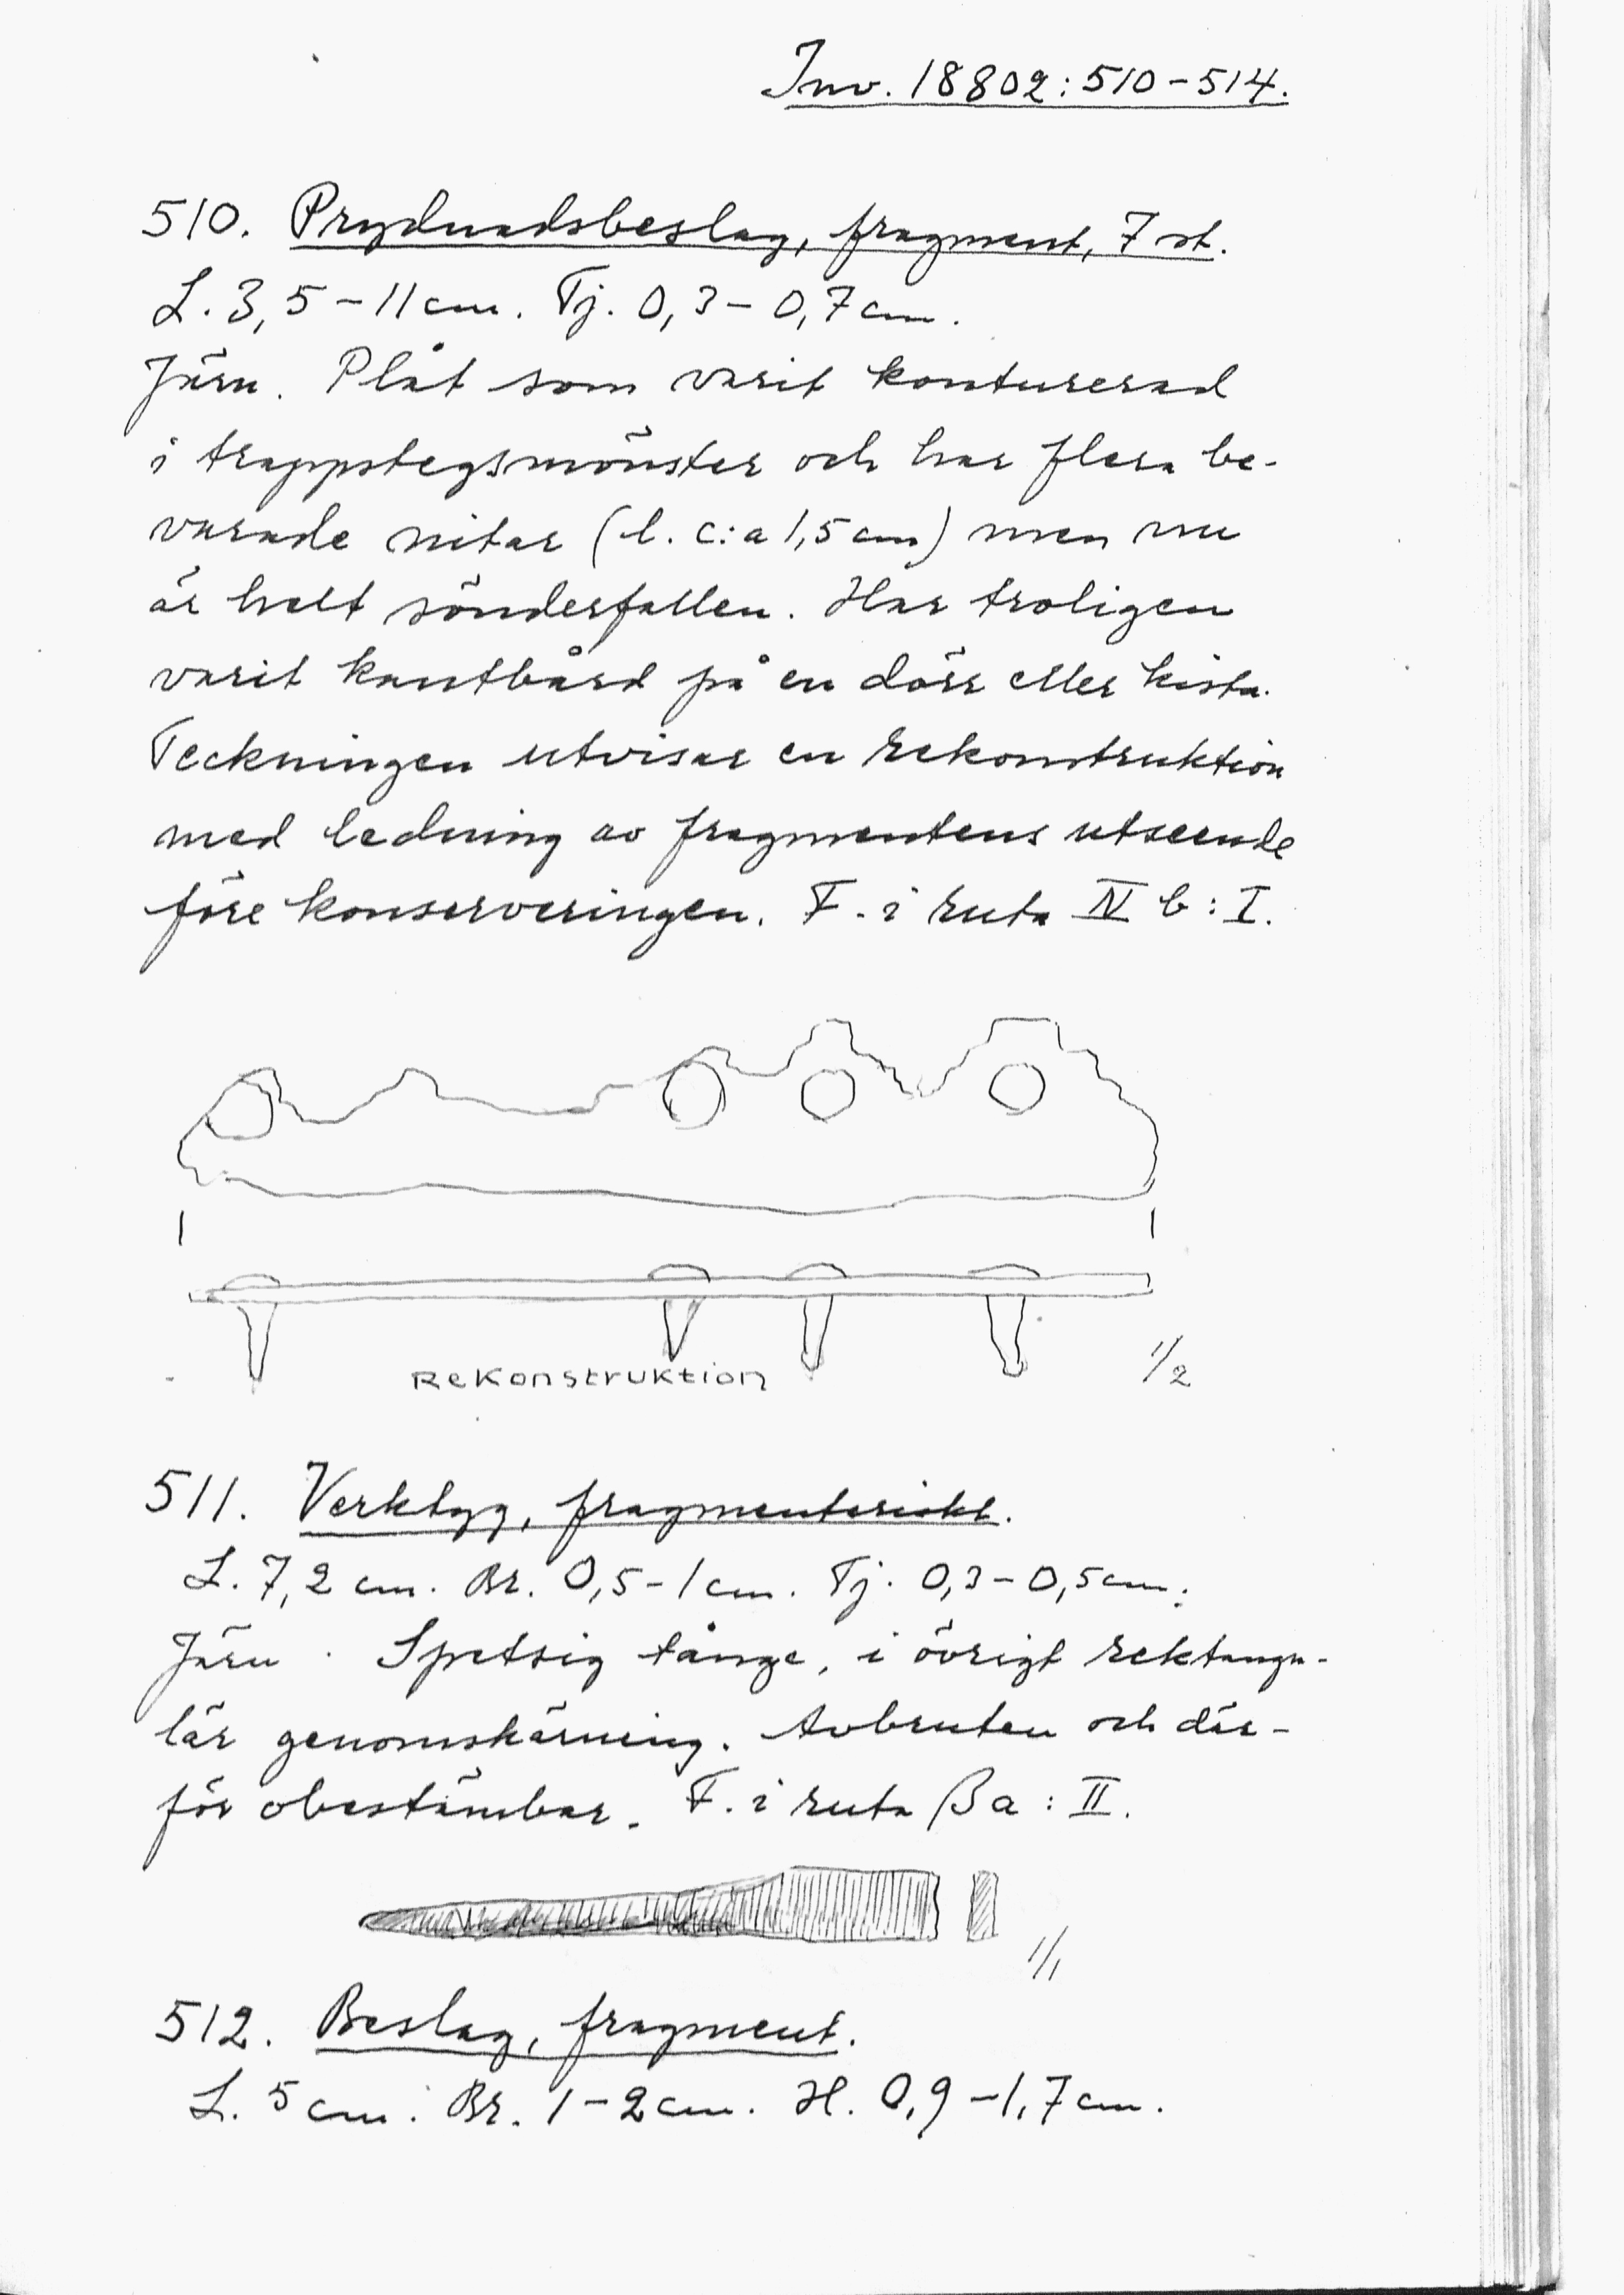 Inv. 18802:510-514.
510. Prydnadsbeslag, fragment, 7 st.
L. 3,5-11 cm. Tj. 0,3-0,7 cm.
Järn. Plåt som varit konturerad
i trappstegsmönster och har flera be-
varade nitar (l. c:a 1,5 cm) men nu
är helt sönderfallen. Har troligen
varit kantbård på en dörr eller kista.
Teckningen utvisar en rekonstruktion
med ledning av fragmentens utseende
före konserveringen. F. i ruta IV b:I.
Rekonstruktion 1/2
511. Verktyg, fragmentariskt.
L. 7,2 cm. Br. 0,5-1 cm. Tj. 0,3-0,5 cm.
Järn. Spetsig tånge, i övrigt rektangu-
lär genomskärning. Avbruten och där-
för obestämbar. F. i ruta βa:II.
1/1
512. Beslag, fragment.
L. 5 cm. Br. 1-2 cm. H. 0,9-1,7 cm.